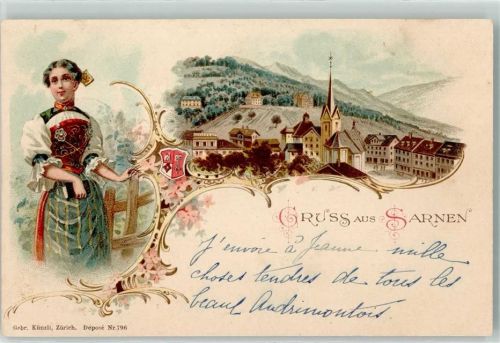 GRUSS AUS SARNEN
J'envoie à Jeanne mille
choses tendres de tous les
beaux Andrimontois.
Gebr. Künzli, Zürich. Déposé Nr. 796